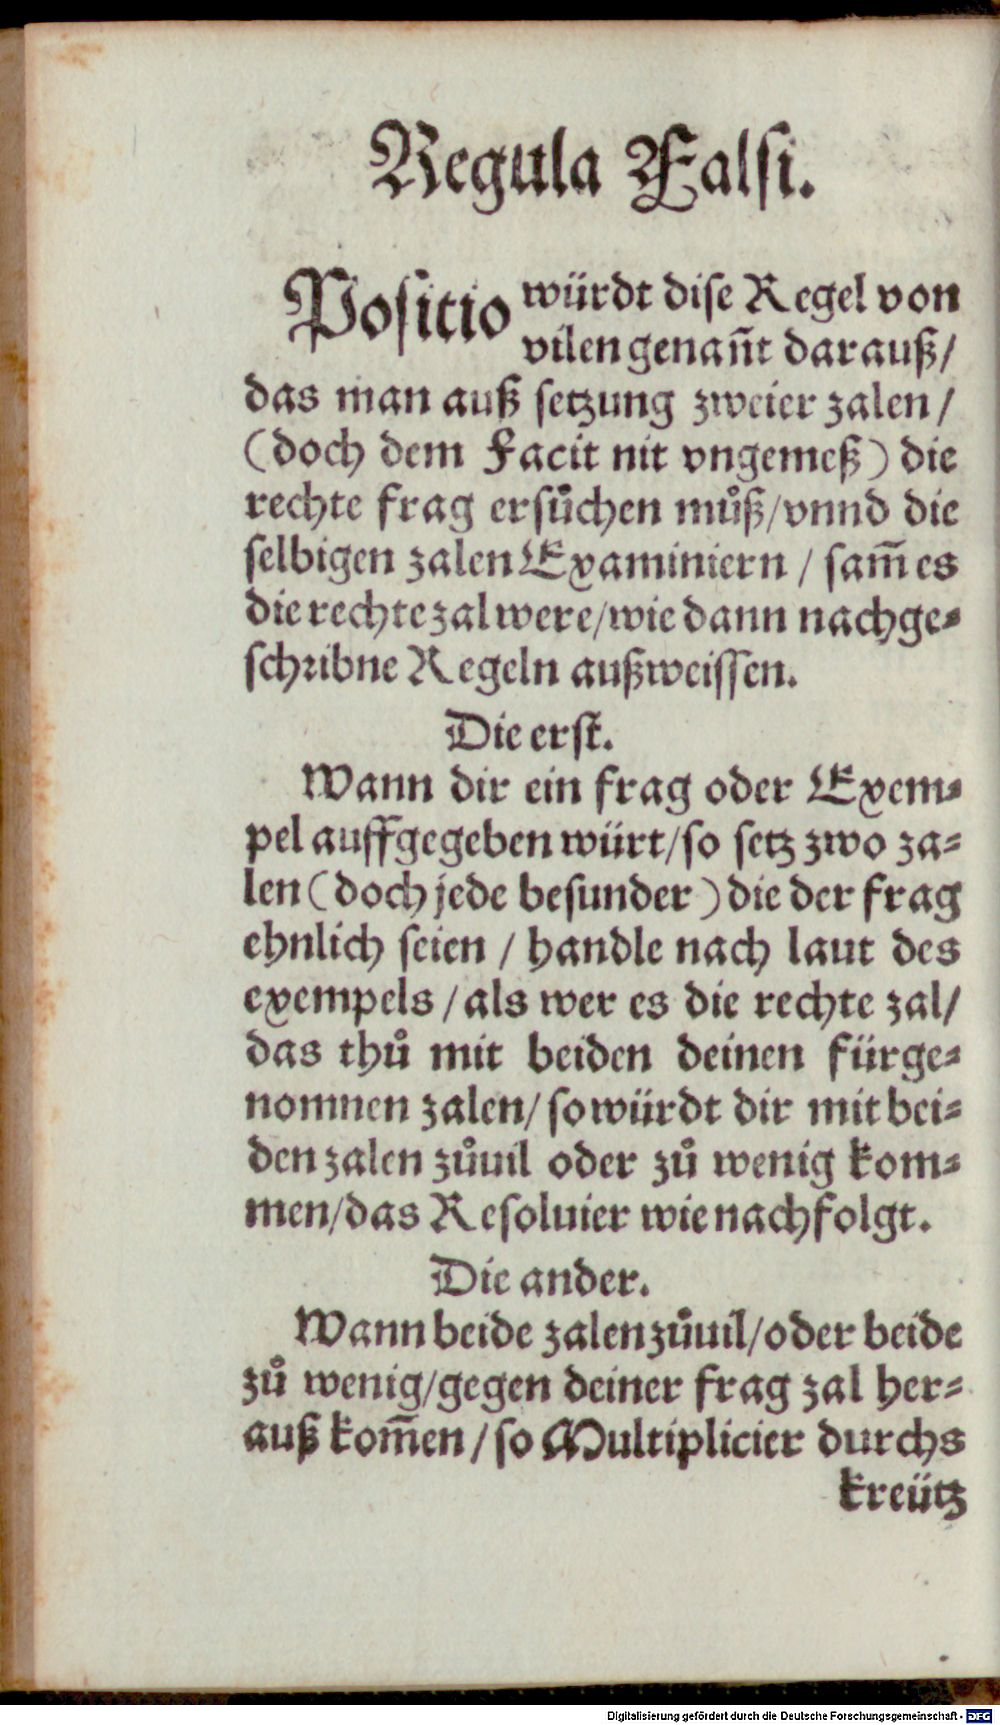 Regula Falſi.
Poſitio würdt diſe Regel von
vilen genañt darauß/
das man auß ſetzung zweier zalen/
(doch dem Facit nit vngemeß) die
rechte frag erſůchen můß/vnnd die
ſelbigen zalen Examiniern / ſam̃ es
die rechte zal were/wie dann nachge⸗
ſchribne Regeln außweiſſen.
Die erſt.
Wann dir ein frag oder Exem⸗
pel auffgegeben würt/ſo ſetz zwo za⸗
len (doch jede beſunder) die der frag
ehnlich ſeien / handle nach laut des
exempels/als wer es die rechte zal/
das thů mit beiden deinen fürge⸗
nomnen zalen/ſo würdt dir mit bei⸗
den zalen zůuil oder zů wenig kom⸗
men/das Reſoluier wie nachfolgt.
Die ander.
Wann beide zalen zůuil/oder beide
zů wenig/gegen deiner frag zal her⸗
auß kom̃en/ſo Multiplicier durchs
kreütz
Digitalisierung gefördert durch die Deutsche Forschungsgemeinschaft - DFG